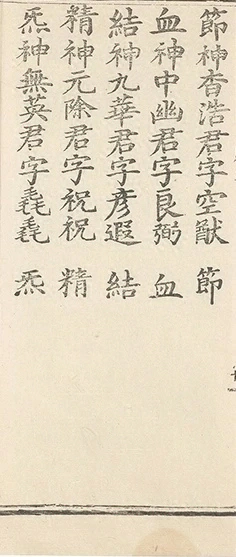 節神杳浩君字空猷 節
血神中幽君字良弼 血
結神九華君字彥遐 結
精神元除君字祝祝 精
炁神無英君字毳毳 炁